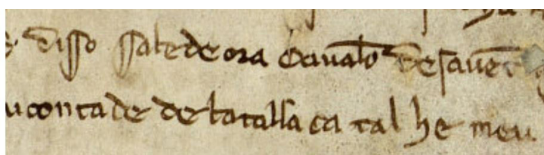 e disso sabede ora Caualo desauen
ucontade de batalla ca tal he meu